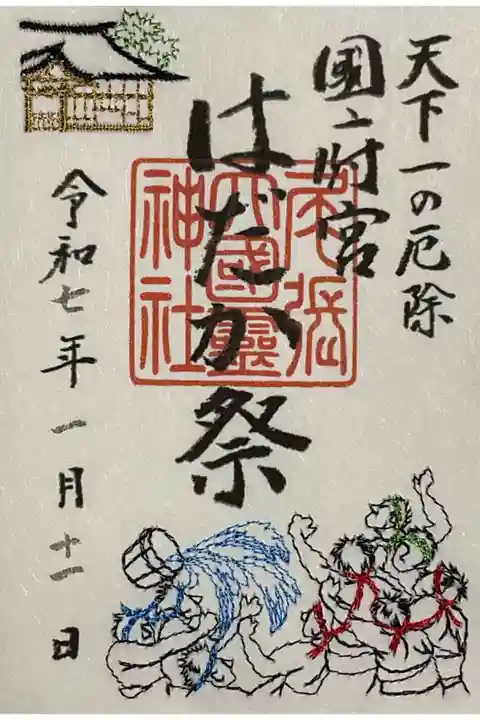 天下一の厄除
國府宮
はだか祭
尾張
大國靈
神社
令和七年一月十一日